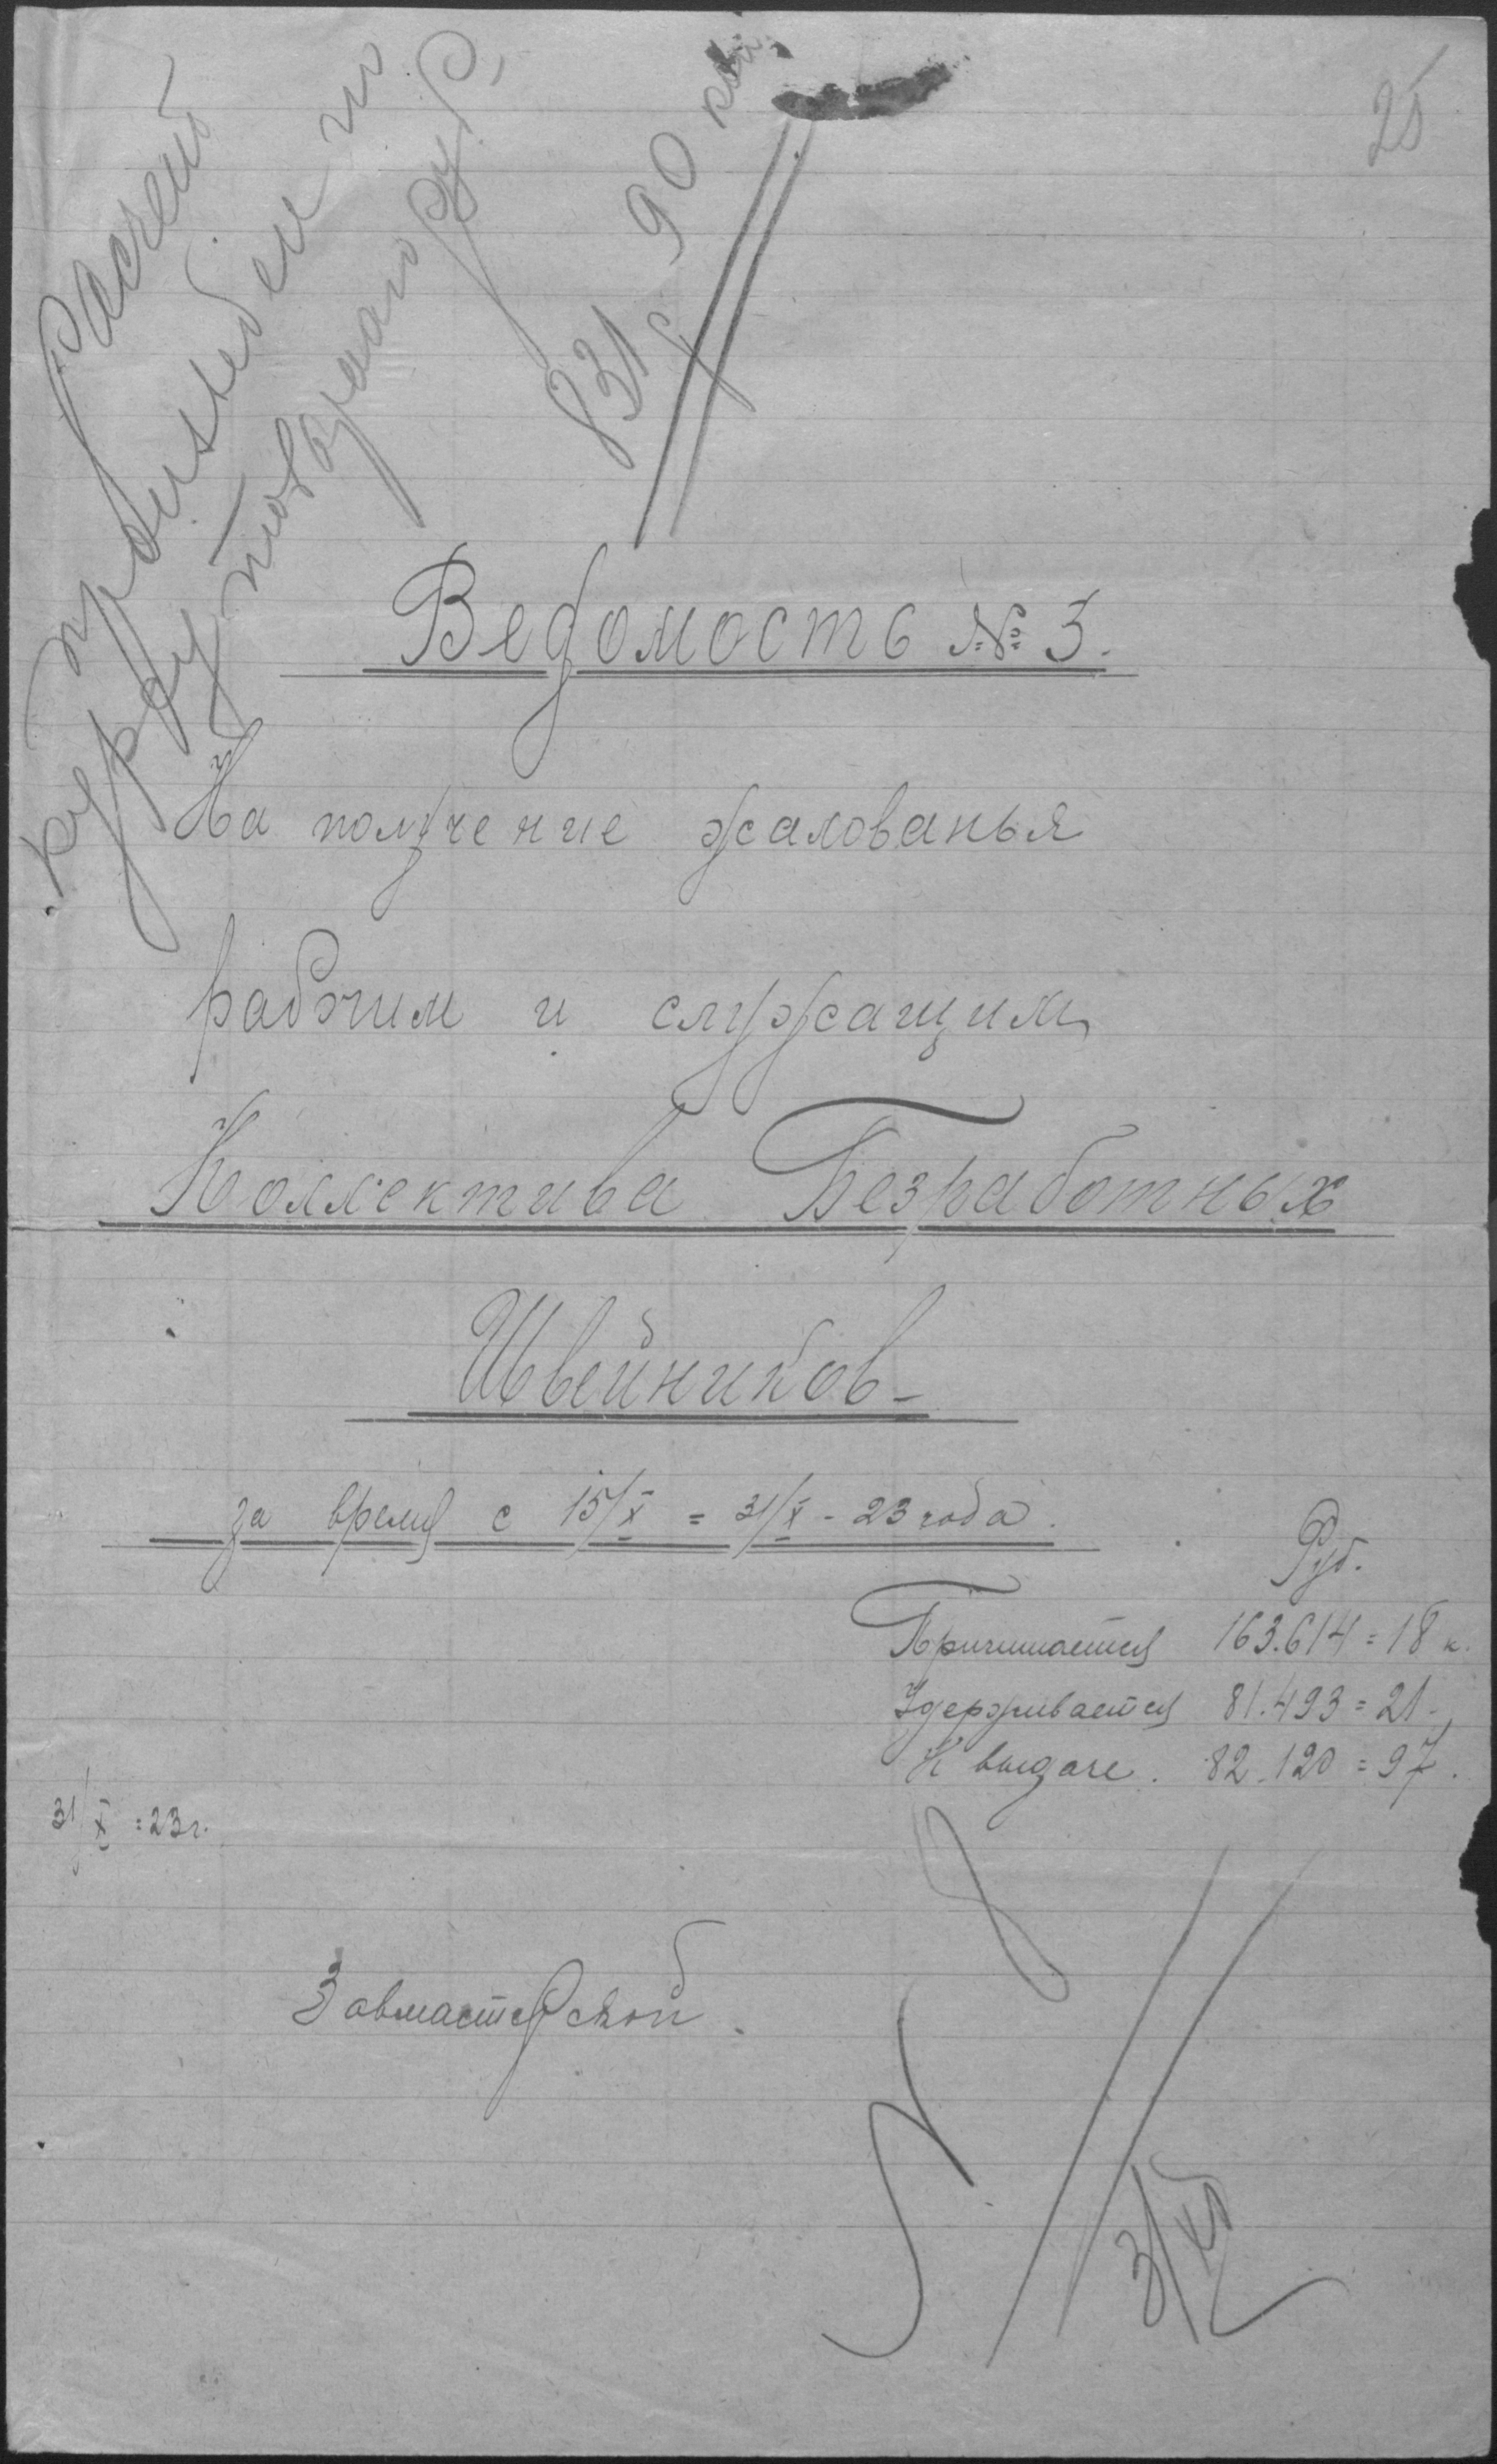 25
Расчет
произведен по
курсу товарного руб,
831 р 90 коп
Ведомость № 3.
На получение жалованья
рабочим и служащим
Коллектива Безработных
Швейников -
за время с 15/X = 31/X - 23 года.
Руб.
Причитается 163.614 = 18 к.
Удерживается 81.493 = 21 -
К выдаче. 82.120 = 97.
31/X = 23 г.
Завмастерской.